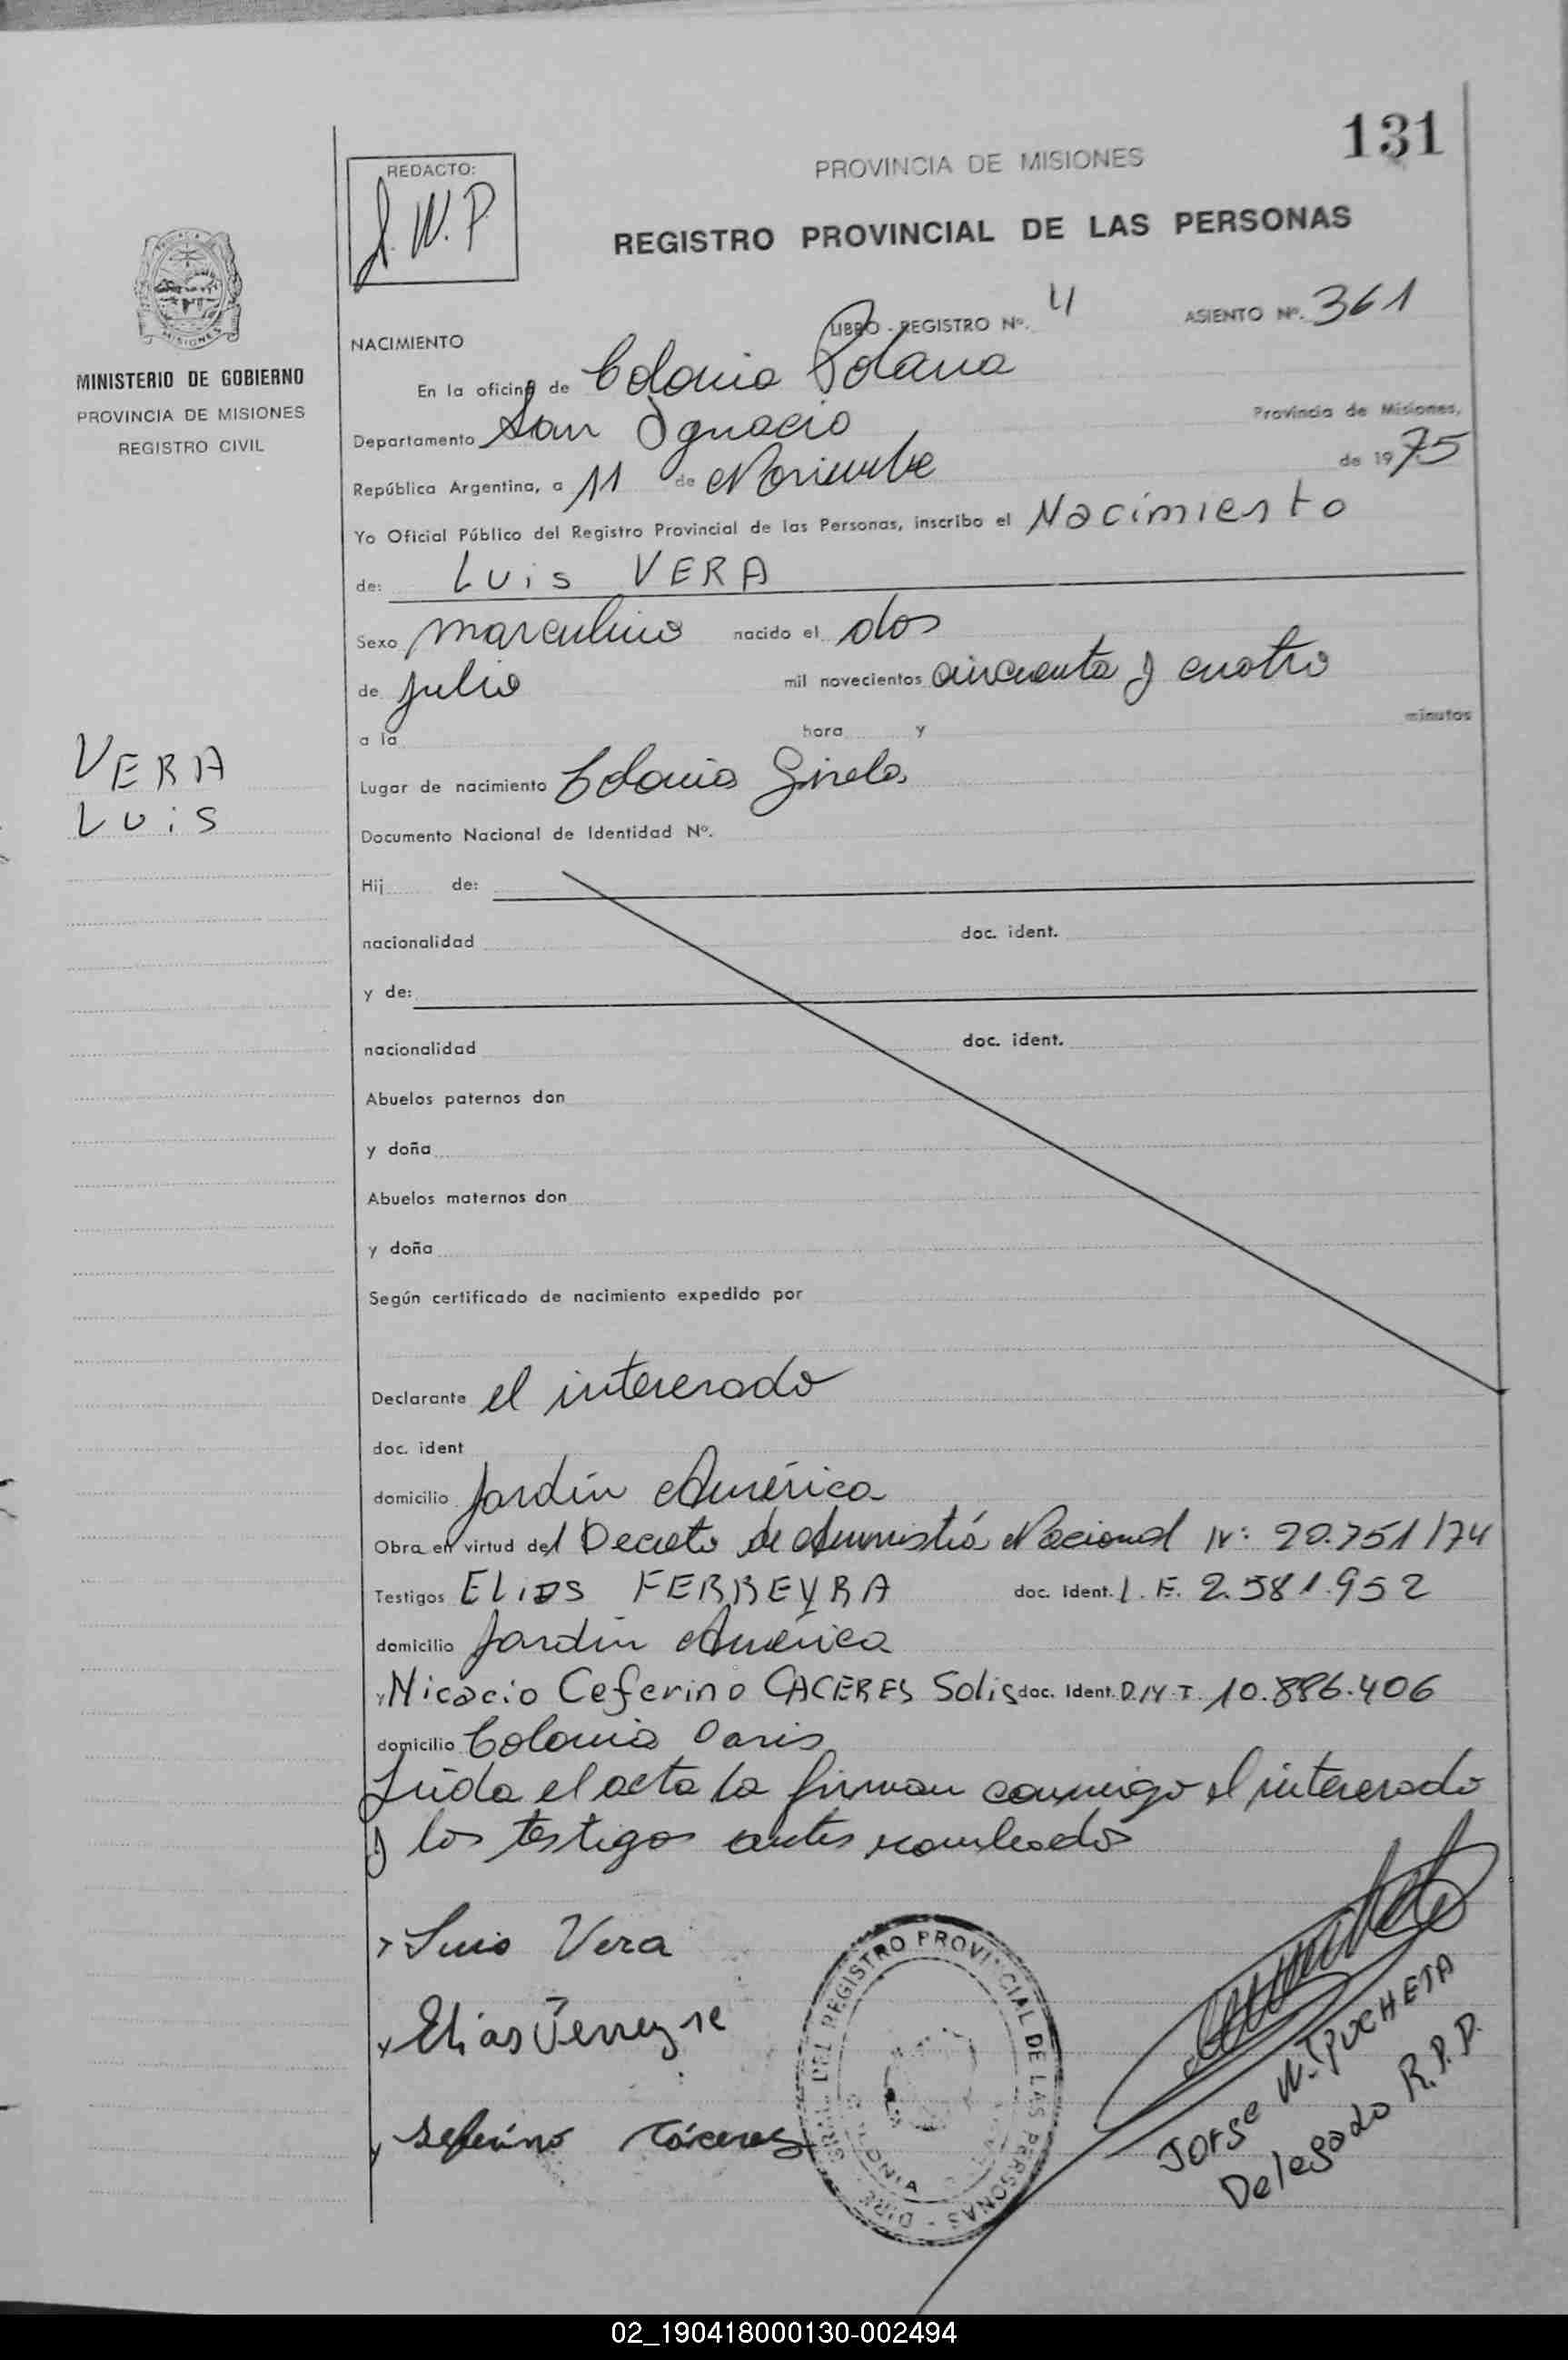 131
PROVINCIA DE MISIONES
REGISTRO PROVINCIAL DE LAS PERSONAS
REDACTO:
J. W. P.
MINISTERIO DE GOBIERNO
PROVINCIA DE MISIONES
REGISTRO CIVIL
LIBRO - REGISTRO Nº. 4 ASIENTO Nº. 361
NACIMIENTO
En la oficina de Colonia Polana
Departamento San Ignacio Provincia de Misiones,
República Argentina, a 11 de Noviembre de 1975
Yo Oficial Público del Registro Provincial de las Personas, inscribo el Nacimiento
de: Luis VERA
Sexo masculino nacido el dos
de julio mil novecientos cincuenta y cuatro
a la hora y minutos
VERA
Luis
Lugar de nacimiento Colonia
Documento Nacional de Identidad Nº.
Hij de:
nacionalidad doc. ident.
y de:
nacionalidad doc. ident.
Abuelos paternos don
y doña
Abuelos maternos don
y doña
Según certificado de nacimiento expedido por
Declarante el interesado
doc. ident
domicilio Jardín América
Obra en virtud del Decreto de Amnistía Nacional Nº: 20.751/74
Testigos ELiAS FERREYRA doc. Ident. L. E. 2.581.952
domicilio Jardín América
y Nicacio Ceferino CACERES Solis doc. Ident. D.N.T. 10.886.406
domicilio Colonia Oasis
Leída el acta la firman conmigo el interesado
y los testigos antes nombrados
Luis Vera
Elias Ferreyre
Seferino Cáceres
REGISTRO PROVINCIAL DE LAS PERSONAS
Jorge W. PUCHETA
Delegado R.P.P.
02_190418000130-002494